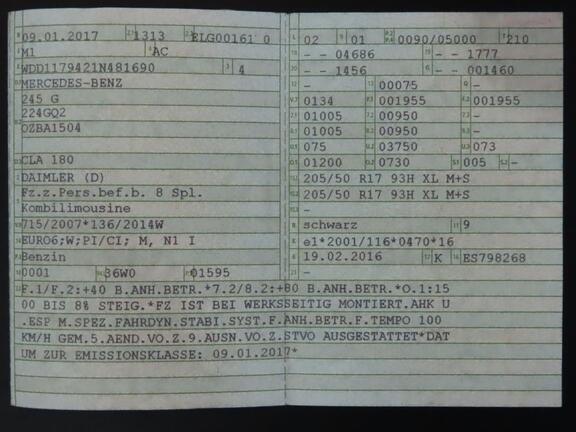 09.01.2017 1313 ELG00161 0
M1 AC
WDD1179421N481690 4
MERCEDES-BENZ
245 G
224GQ2
OZBA1504
CLA 180
DAIMLER (D)
Fz.z.Pers.bef.b. 8 Spl.
Kombilimousine
715/2007*136/2014W
EURO6;W;PI/CI; M, N1 I
Benzin
0001 36W0 01595
F.1/F.2:+40 B.ANH.BETR.*7.2/8.2:+80 B.ANH.BETR.*O.1:15
00 BIS 8% STEIG.*FZ IST BEI WERKSSEITIG MONTIERT.AHK U
.ESP M.SPEZ.FAHRDYN.STABI.SYST.F.ANH.BETR.F.TEMPO 100
KM/H GEM.5.AEND.VO.Z.9.AUSN.VO.Z.STVO AUSGESTATTET*DAT
UM ZUR EMISSIONSKLASSE: 09.01.2017*
02 01 0090/05000 210
- - 04686 - - 1777
- - 1456 - - 001460
- 00075 -
0134 001955 001955
01005 00950 -
01005 00950 -
075 03750 073
01200 0730 005 -
205/50 R17 93H XL M+S
205/50 R17 93H XL M+S
-
schwarz 9
e1*2001/116*0470*16
19.02.2016 K ES798268
-